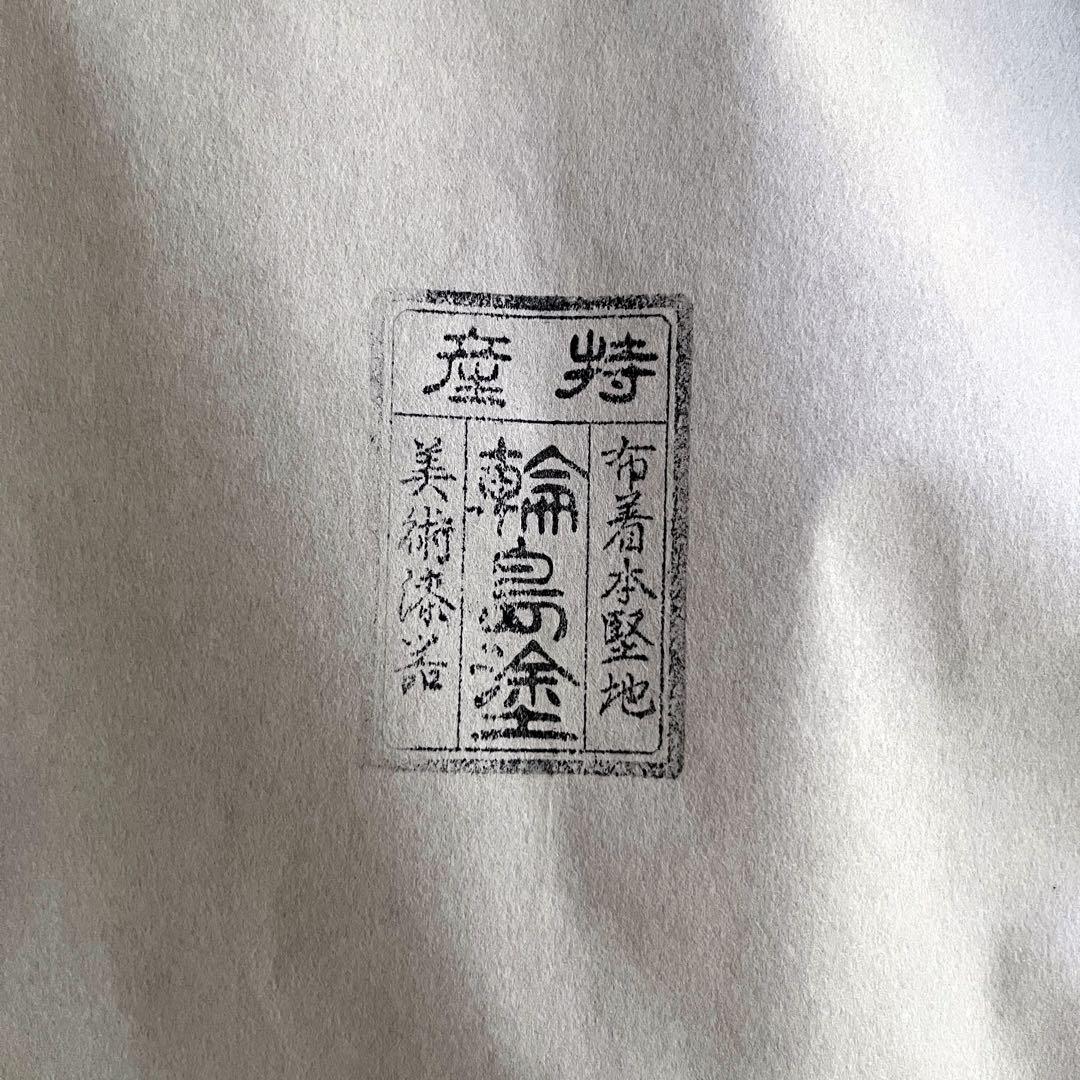 特産
布着本堅地
輪島塗
美術漆器